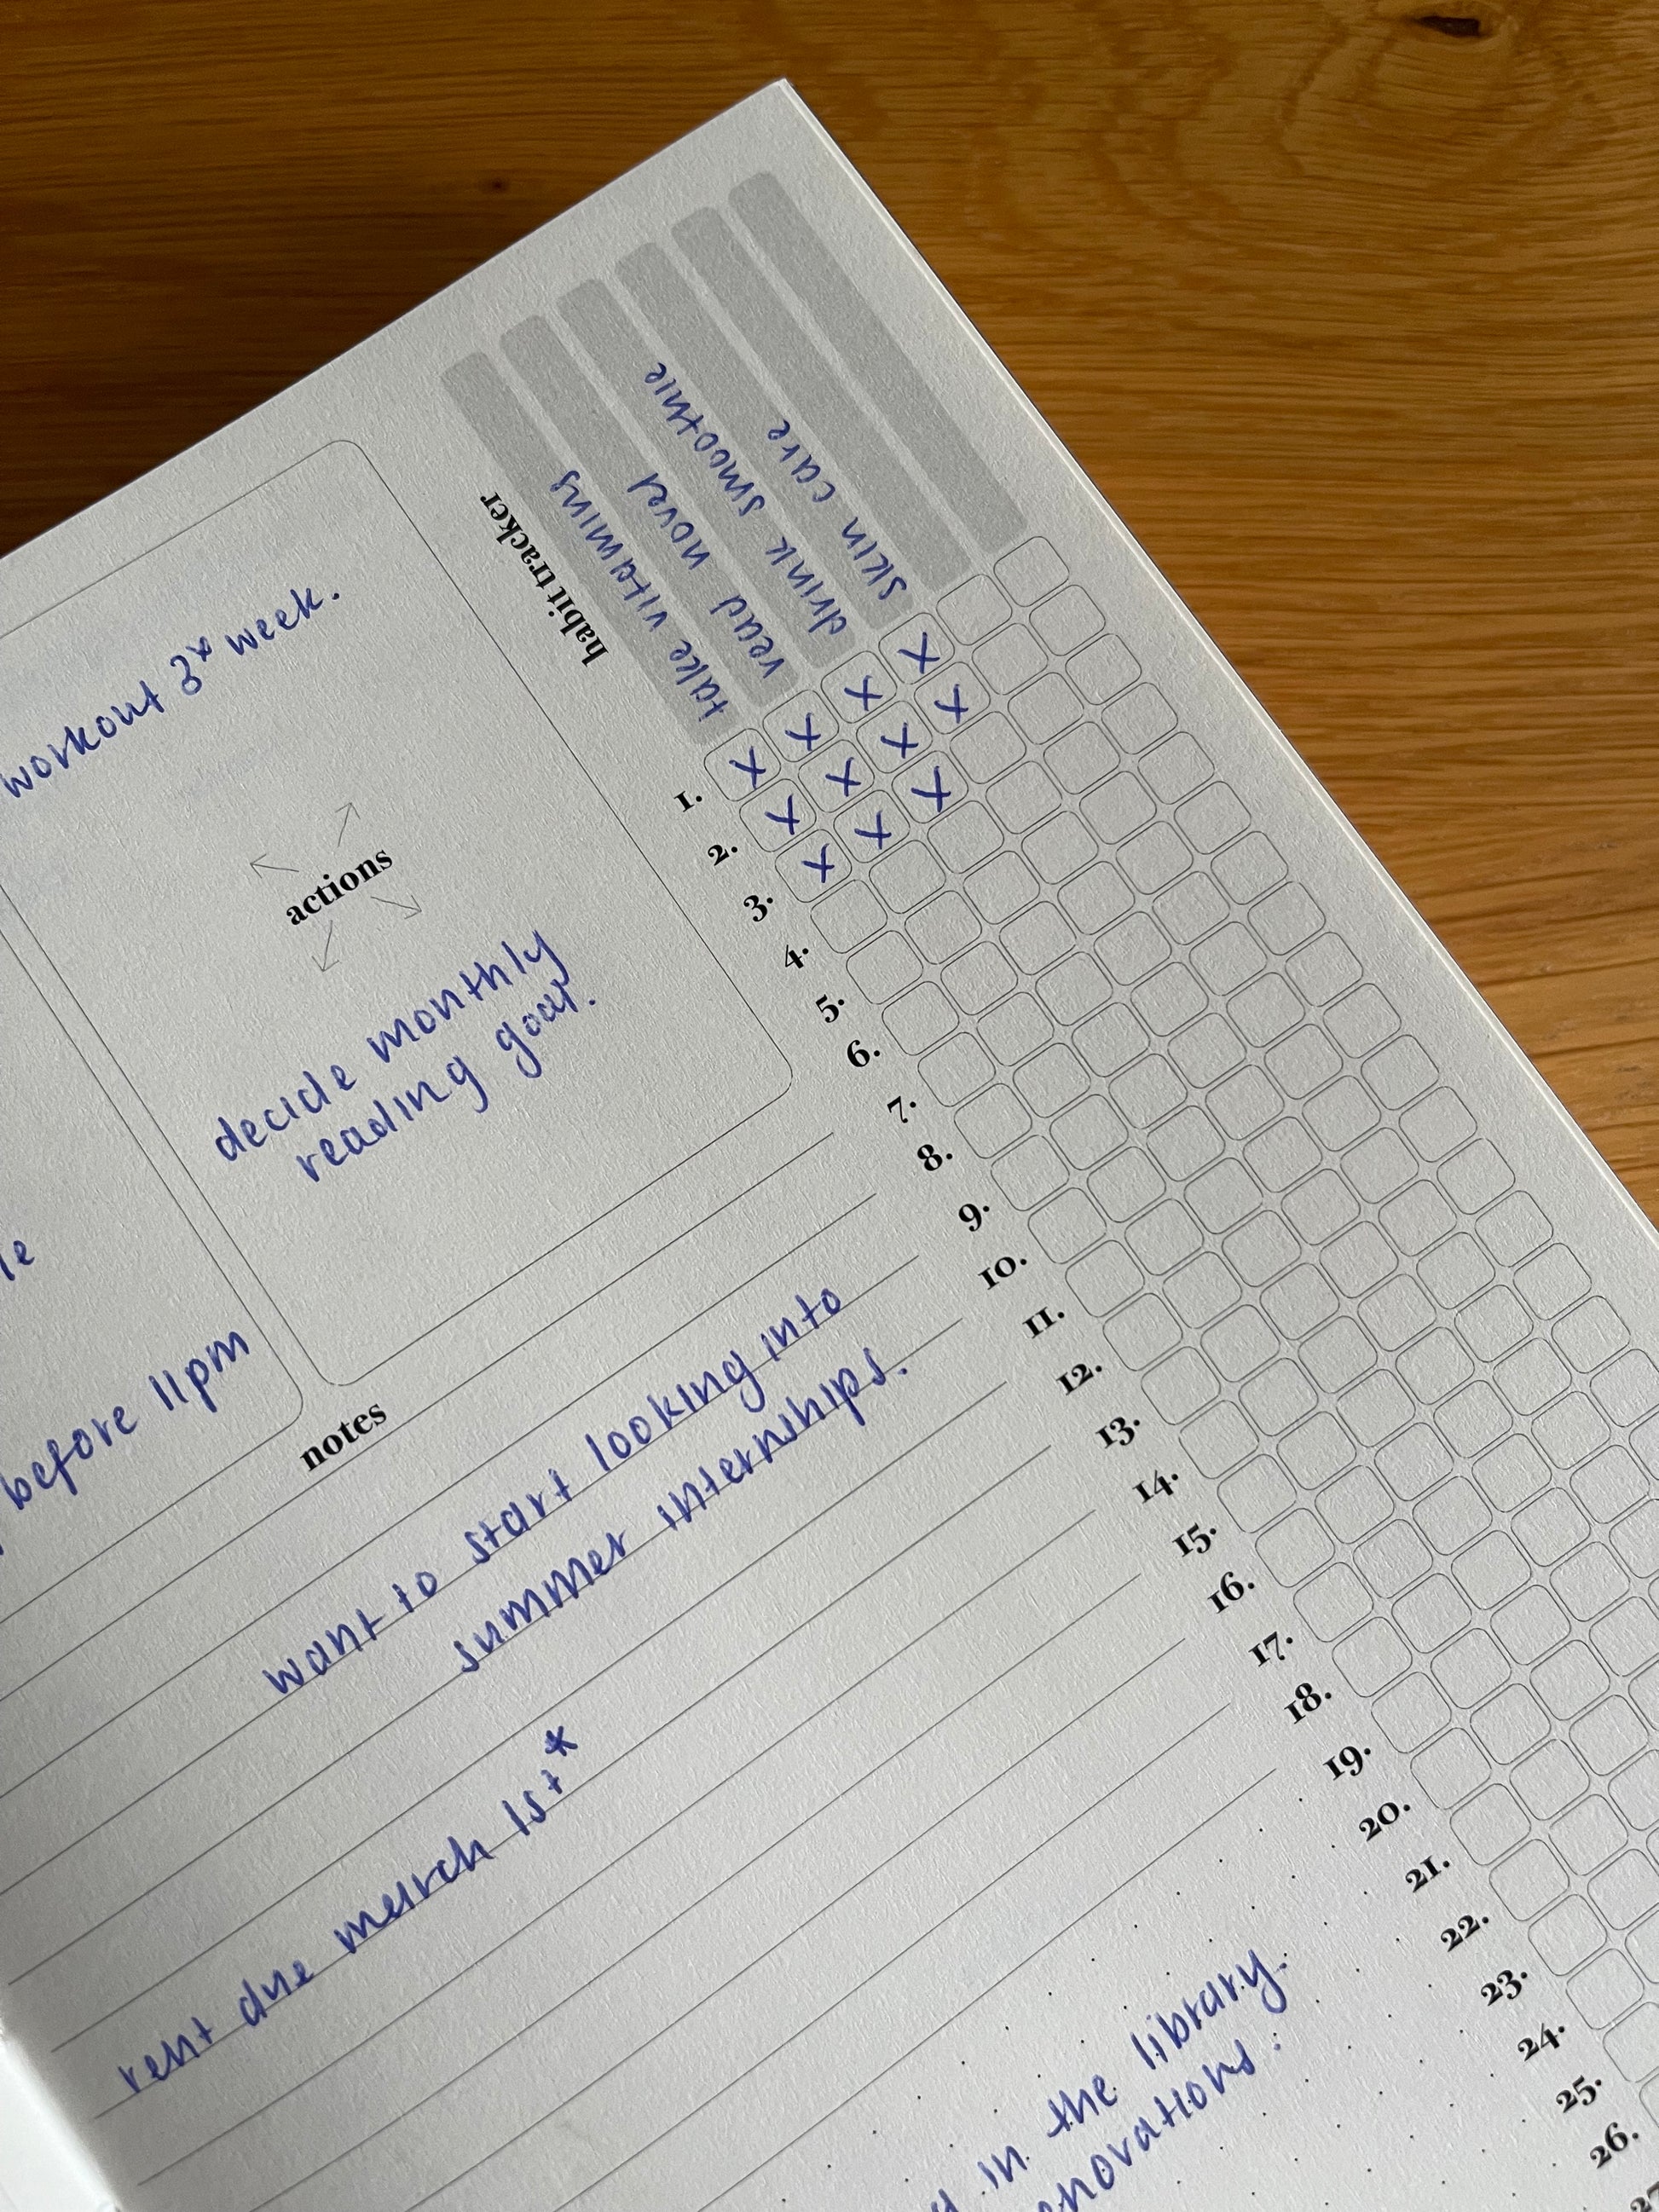 workout 3x week.
actions
decide monthly
reading goal.
before 11pm
notes
want to start looking into
summer internships.
rent due march 1st*
in the library.
habit tracker
take vitamins
read novel
drink smoothie
skin care
1. X X X X
2. X X X X
3. X X X
4.
5.
6.
7.
8.
9.
10.
11.
12.
13.
14.
15.
16.
17.
18.
19.
20.
21.
22.
23.
24.
25.
26.